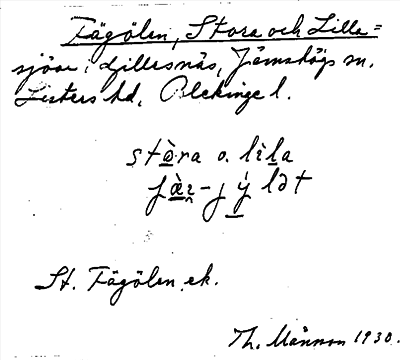 Fägölen, Stora och Lilla =
sjöar i Gillesnäs, Jämshögs sn.
Listers hd, Blekinge l.
stòra o. lìla
fæ̀ɪ-jýlət
St. Fägölen, ek.
Th. Månsson 1930.